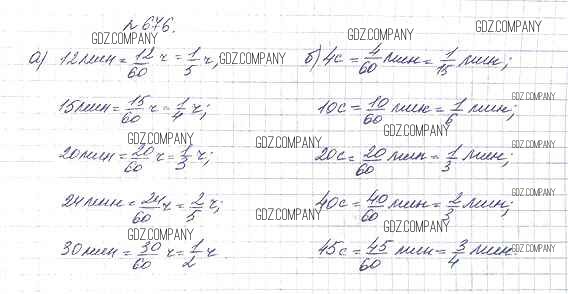 № 676.
GDZ.COMPANY GDZ.COMPANY GDZ.COMPANY
а) 12 мин = 12/60 ч = 1/5 ч, GDZ.COMPANY б) 4с = 4/60 мин = 1/15 мин;
GDZ.COMPANY
15 мин = 15/60 ч = 1/4 ч; 10с = 10/60 мин = 1/6 мин;
GDZ.COMPANY GDZ.COMPANY GDZ.COMPANY GDZ.COMPANY
20 мин = 20/60 ч = 1/3 ч; 20с = 20/60 мин = 1/3 мин;
GDZ.COMPANY
24 мин = 24/60 ч = 2/5 ч; 40с = 40/60 мин = 2/3 мин;
GDZ.COMPANY GDZ.COMPANY GDZ.COMPANY
30 мин = 30/60 ч = 1/2 ч 45с = 45/60 мин = 3/4 мин. GDZ.COMPANY